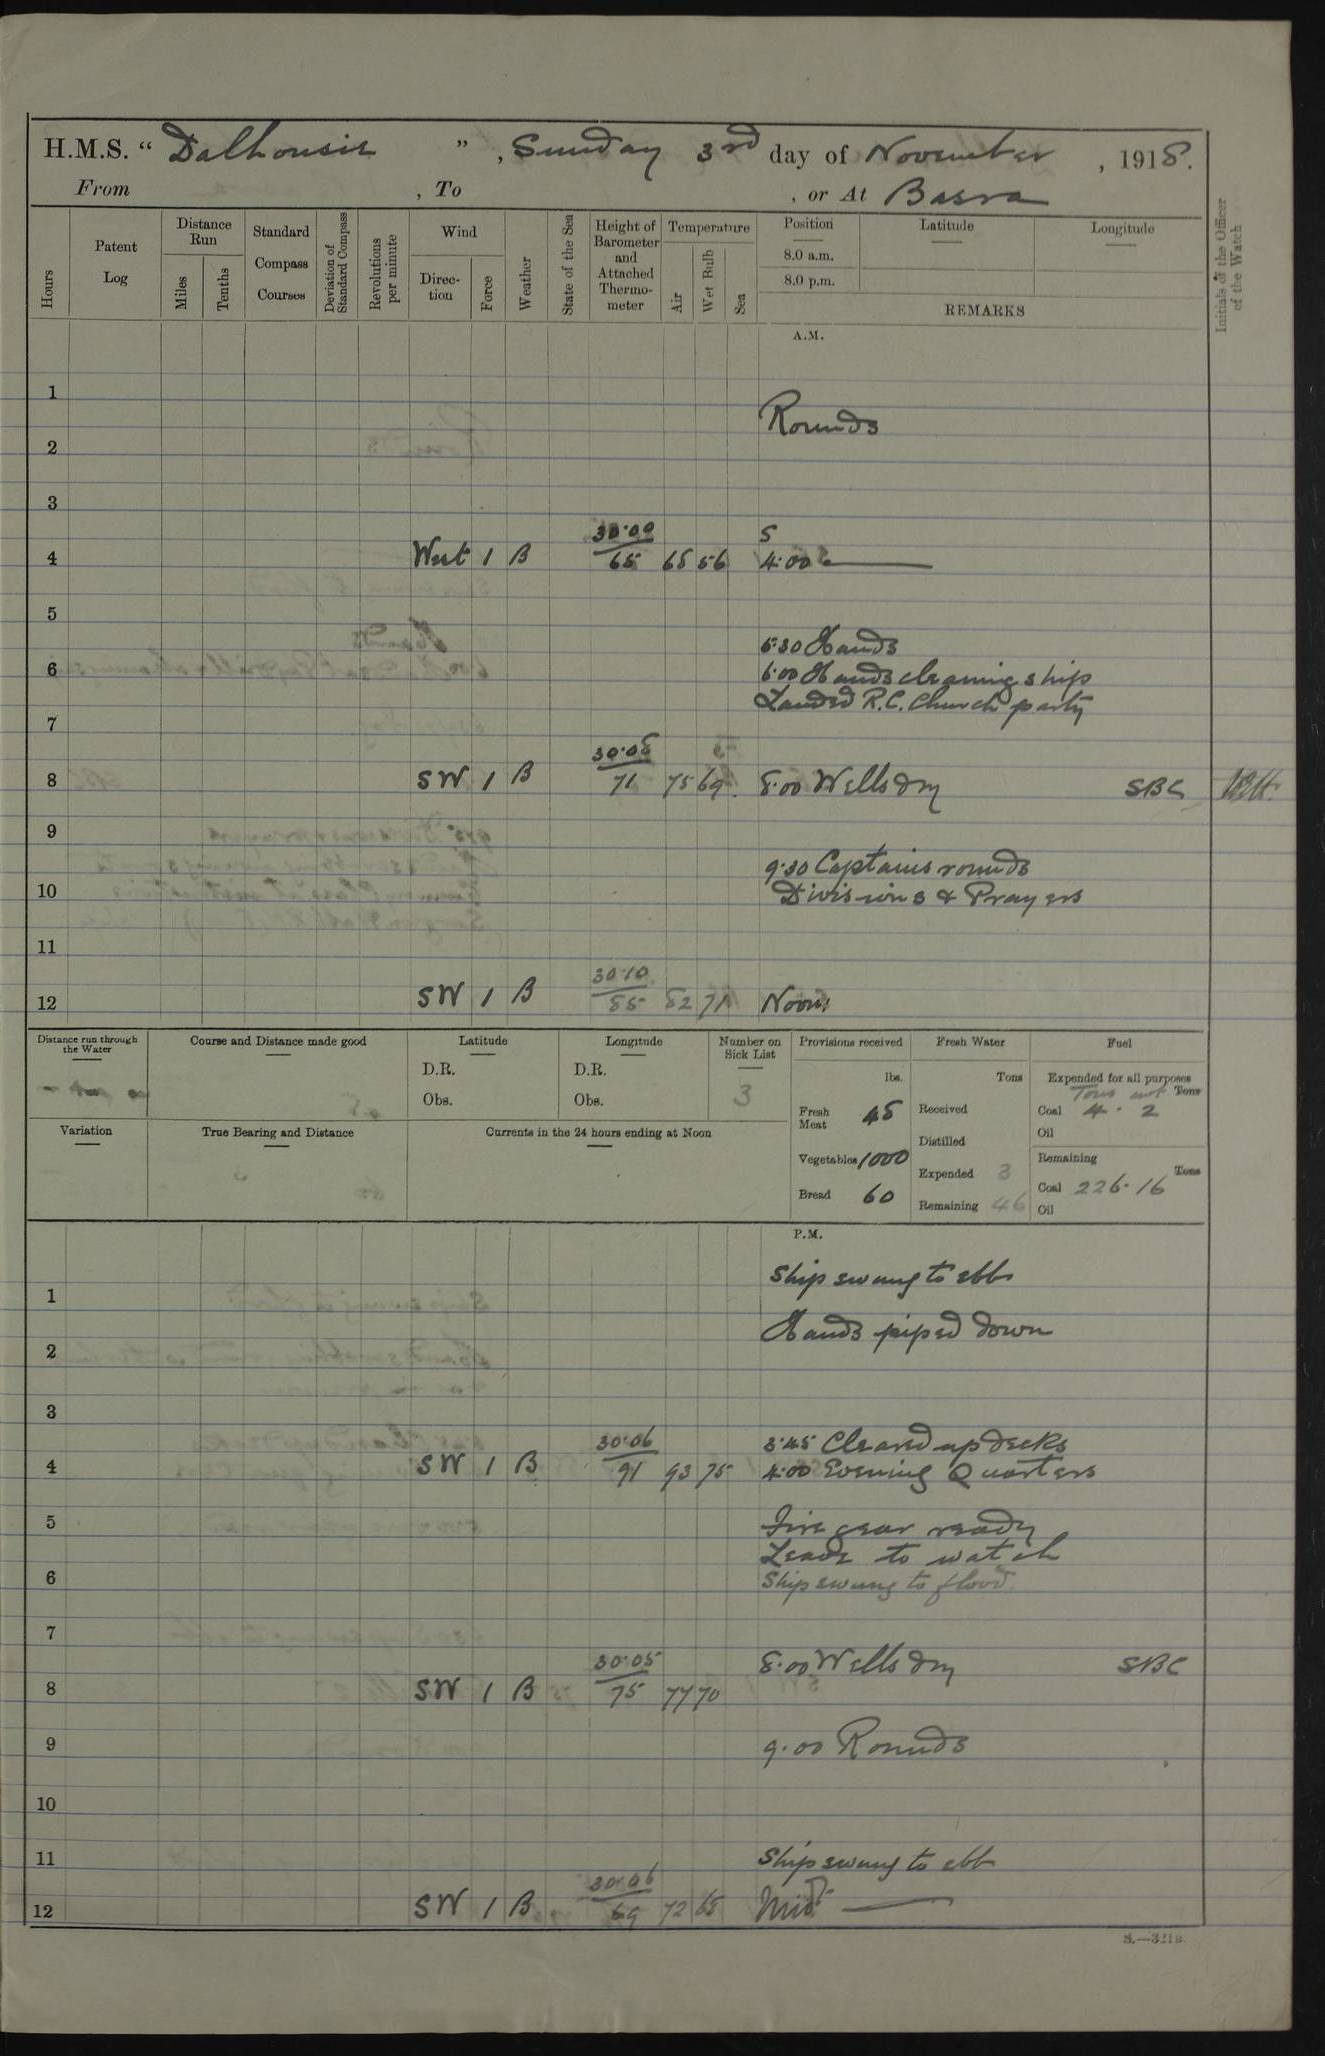 H.M.S. “ Dalhousie ”, Sunday 3rd day of November, 1918.
From , To , or At Basra
Hours
Patent Log
Distance Run
Miles
Tenths
Standard Compass Courses
Deviation of Standard Compass
Revolutions per minute
Wind
Direction
Force
Weather
State of the Sea
Height of Barometer and Attached Thermometer
Temperature
Air
Wet Bulb
Sea
Position
8.0 a.m.
8.0 p.m.
Latitude
Longitude
REMARKS
Initials of the Officer of the Watch
A.M.
1
Rounds
2
3
4 West 1 B 30·00 65 65 56 4·00
5
5·30 Hands
6 6·00 Hands cleaning ship
Landed R.C. Church party
7
8 SW 1 B 30·08 71 75 69 8·00 Wells dry SBC
9
9·30 Captains rounds
10 Divisions & Prayers
11
12 SW 1 B 30·10 85 82 71 Noon
Distance run through the Water
Course and Distance made good
Latitude
D.R.
Obs.
Longitude
D.R.
Obs.
Number on Sick List
3
Provisions received
lbs.
Fresh Meat 45
Vegetables 1000
Bread 60
Fresh Water
Tons
Received
Distilled
Expended 3
Remaining 46
Fuel
Expended for all purposes
Tons cwt Tons
Coal 4 · 2
Oil
Remaining
Tons
Coal 226·16
Oil
Variation
True Bearing and Distance
Currents in the 24 hours ending at Noon
P.M.
Ship swung to ebb
1
Hands piped down
2
3
3·45 Cleared up decks
4 SW 1 B 30·06 91 93 75 4·00 Evening Quarters
5 Fire gear ready
Leave to watch
6 Ship swung to flood.
7
8 SW 1 B 30·05 75 77 70 8·00 Wells dry SBC
9 9·00 Rounds
10
11 Ship swung to ebb
12 SW 1 B 30·06 69 72 68 Midt
S.—321B.